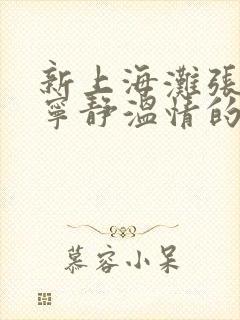 新上海灘張
寧靜溫情的
慕容小呆